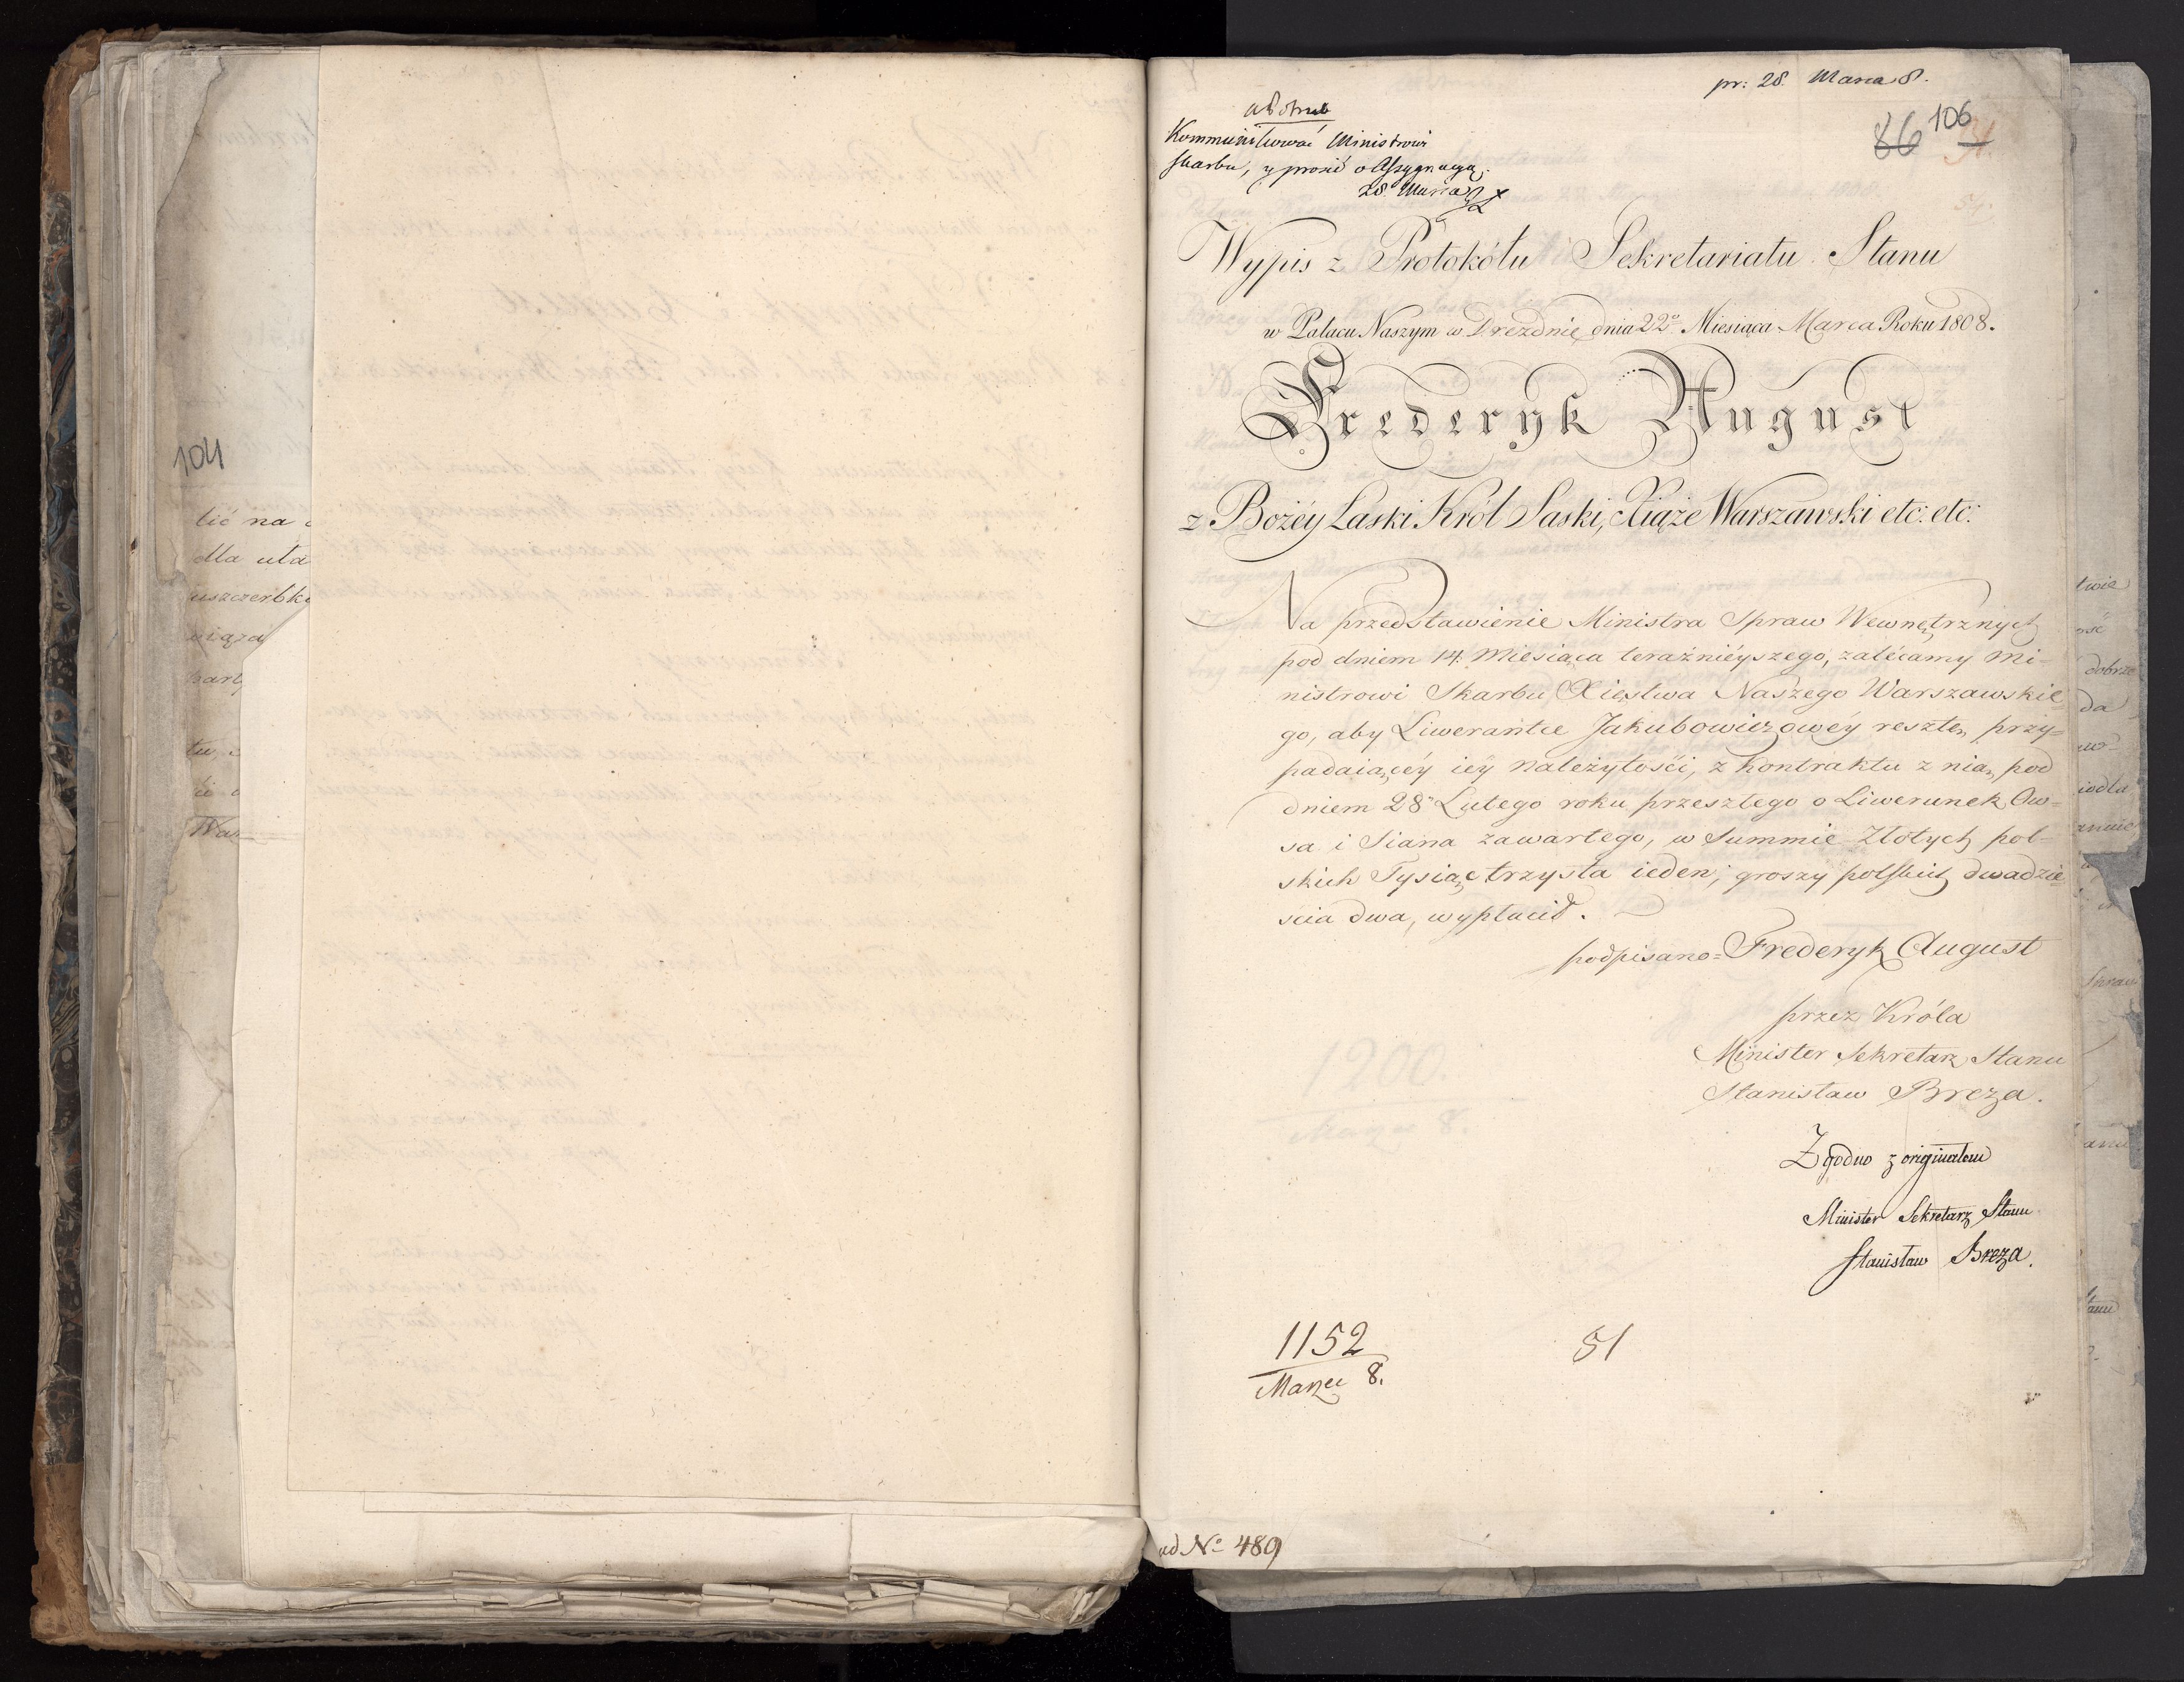 104
tić na
dla uła
uszczerbk
pr: 28. Marca 8.
106
86
Kommunikować Ministrowi
skarbu, y prosić o Assygnacyą.
28 Marca
Wypis z Protokółu Sekretariatu Stanu
w Pałacu Naszym w Dreznie, dnia 22º Miesiąca Marca Roku 1808.
Frederyk August
z Bożéy Łaski Król Saski, Xiąże Warszawski etc: etc:
Na przedstawienie Ministra Spraw Wewnętrznych
pod dniem 14. Miesiąca teraźnieyszego, zalécamy Mi-
nistrowi Skarbu Xięstwa Naszego Warszawskie
go, aby Liwerantce Jakubowiczowéy resztę, przy-
padaiącéy iéy należytości, z kontraktu z nią, pod
dniem 28º Lutego roku przeszłego o Liwerunek Ow-
sa i Siana zawartego, w Summie Złotych pol-
skich Tysiąc trzysta ieden, groszy polskich dwadzie
ścia dwa, wypłacił.
podpisano = Frederyk August
przez Króla
Minister Sekretarz Stanu
Stanisław Breza.
Zgodno z originałem
Minister Sekretarz Stanu
Stanisław Breza.
1152
Marzec 8.
51
ad Nº 489